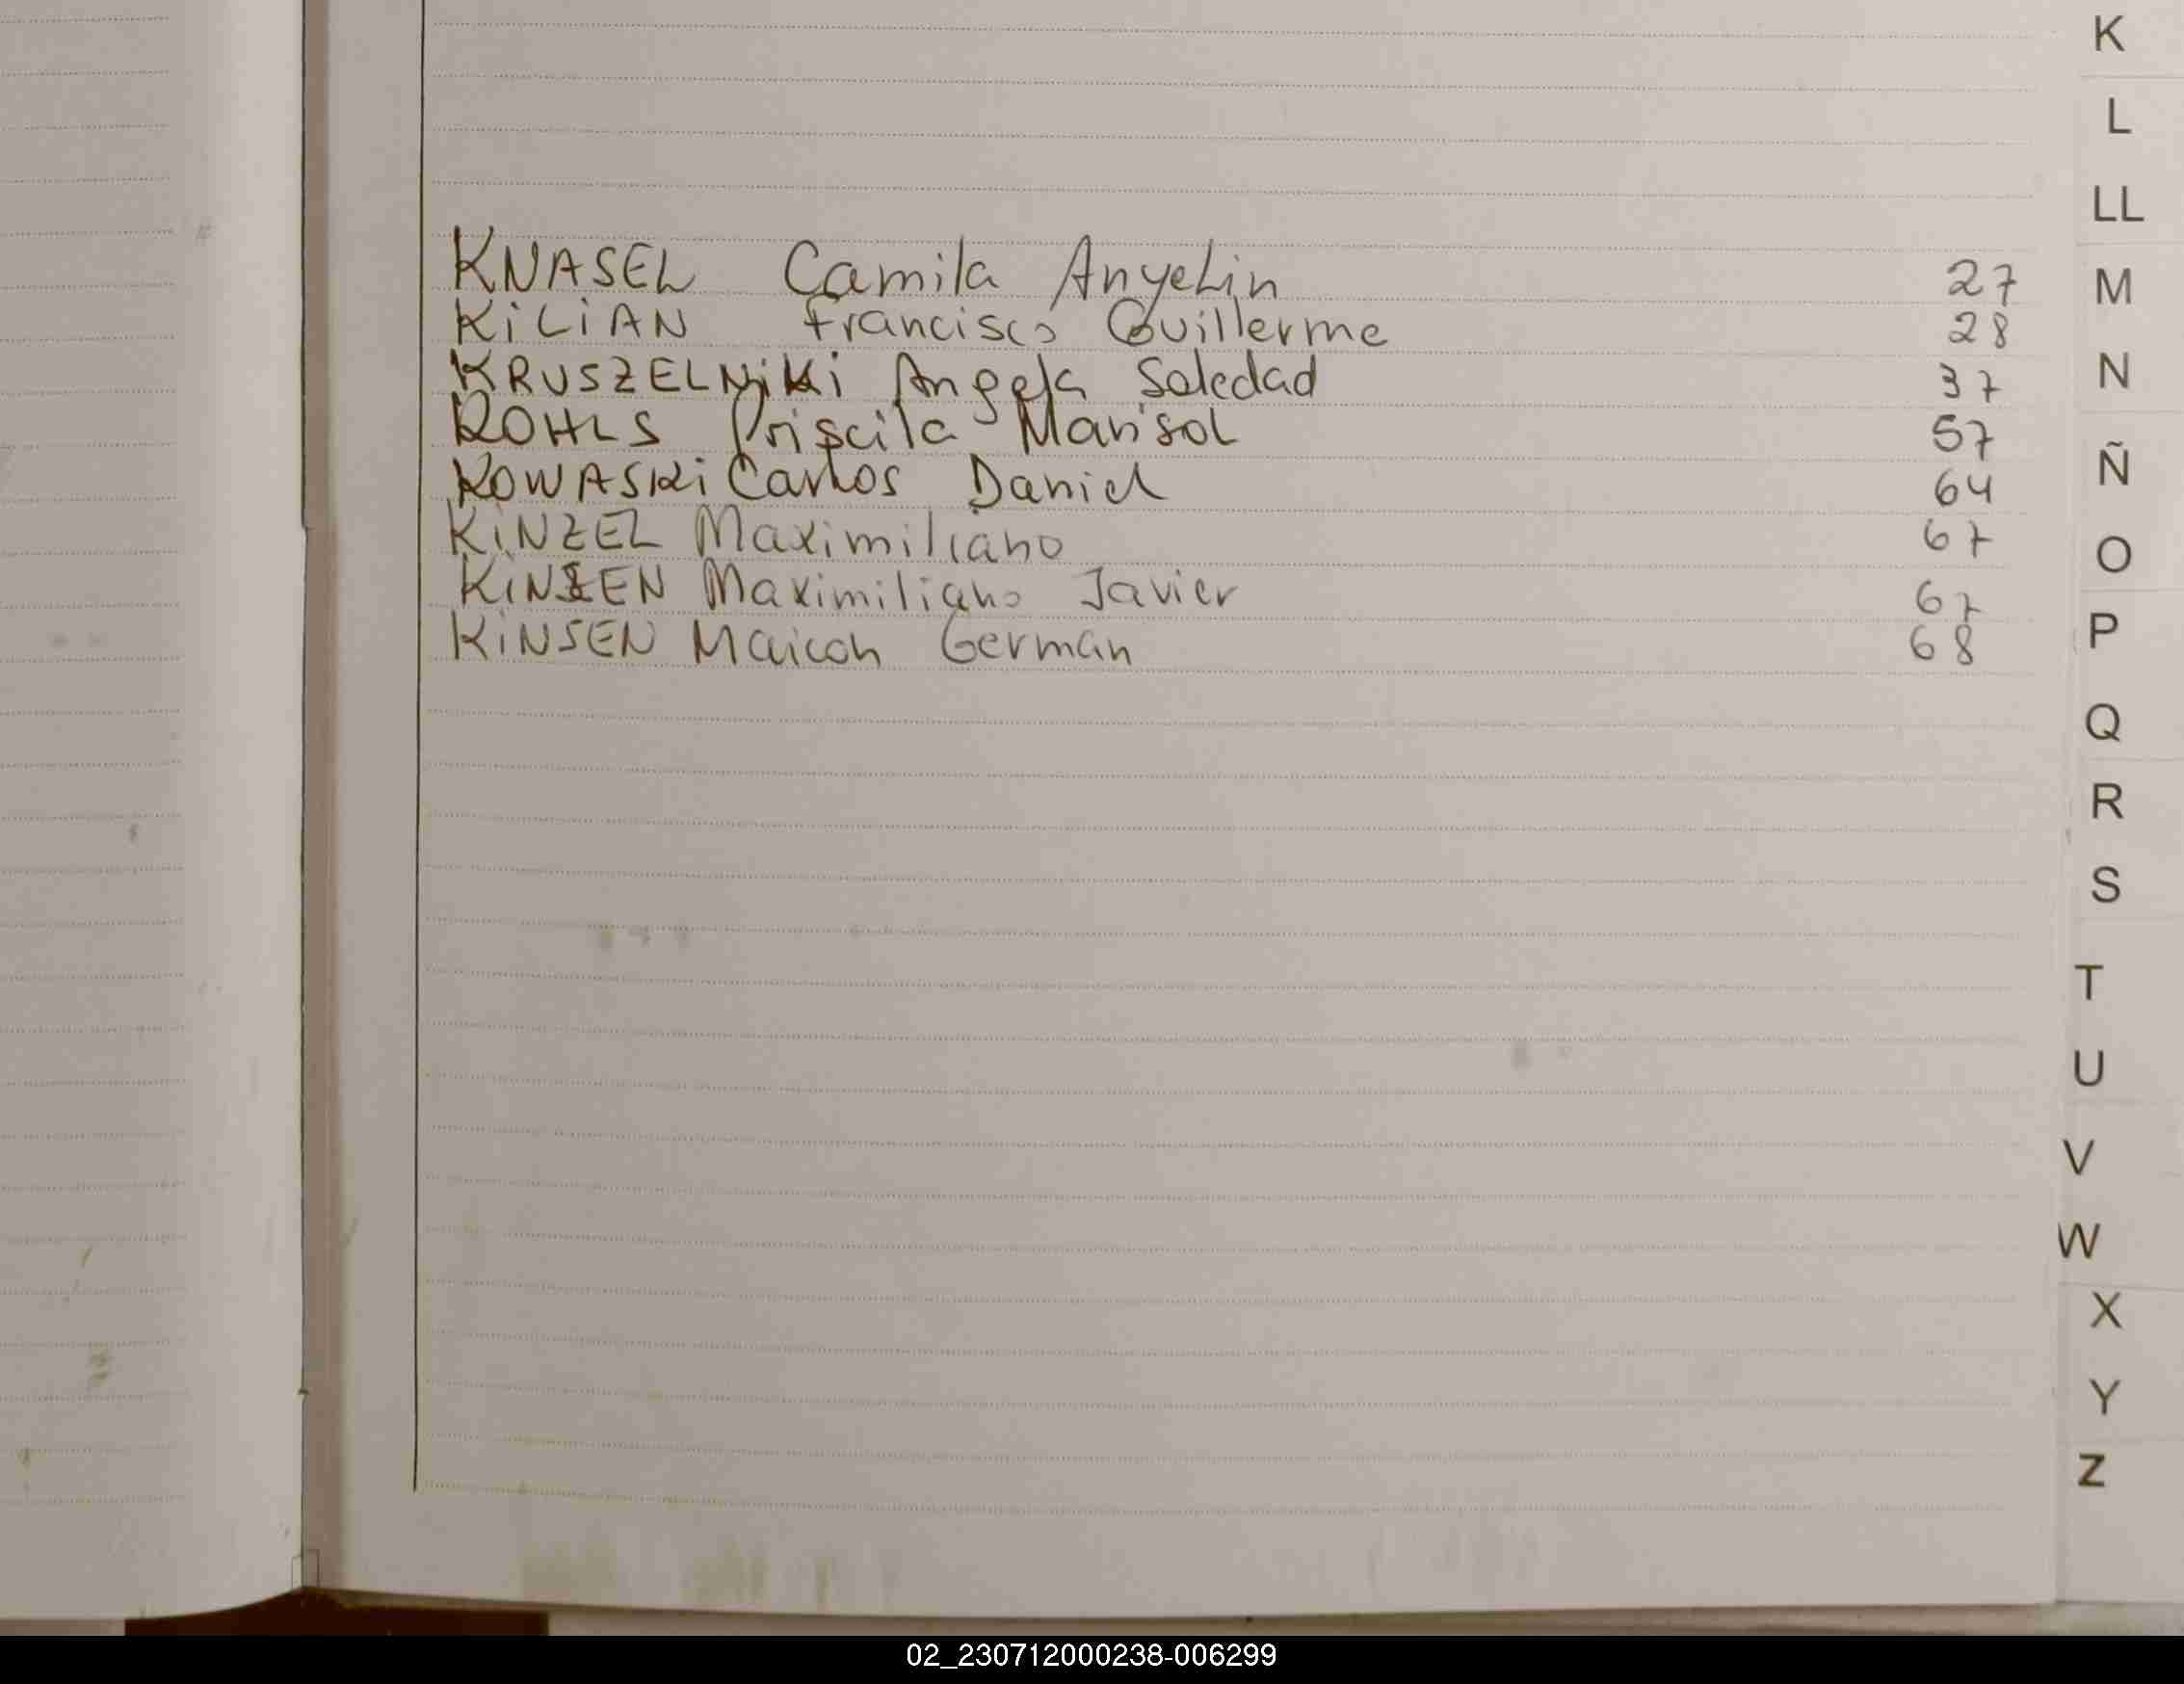 KNASEL Camila Anyelin 27
KiLiAN Francisco Guillerme 28
KRUSZELNiKi Angela Soledad 37
KOHLS Priscila Marisol 57
KOWASKi Carlos Daniel 64
KiNZEL Maximiliano 67
KiNZEN Maximiliano Javier 67
KiNSEN Maicon German 68
K
L
LL
M
N
Ñ
O
P
Q
R
S
T
U
V
W
X
Y
Z
02_230712000238-006299